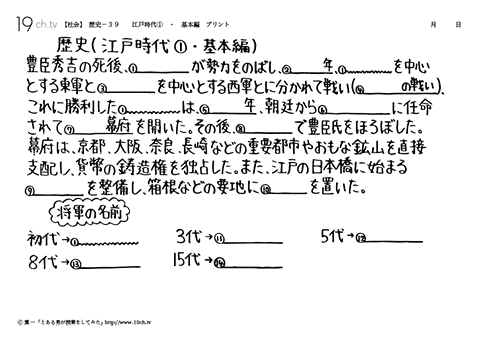 19ch.tv 【社会】 歴史－39 江戸時代① ・ 基本編 プリント 月 日
歴史(江戸時代①・基本編)
豊臣秀吉の死後、①________が勢力をのばし、②____年、①________を中心
とする東軍と③________を中心とする西軍とに分かれて戦い(④________の戦い)、
これに勝利した①________は、⑤____年、朝廷から⑥________に任命
されて⑦____幕府を開いた。その後、⑧________で豊臣氏をほろぼした。
幕府は、京都、大阪、奈良、長崎などの重要都市やおもな鉱山を直接
支配し、貨幣の鋳造権を独占した。また、江戸の日本橋に始まる
⑨________を整備し、箱根などの要地に⑩________を置いた。
将軍の名前
初代→①________ 3代→⑪________ 5代→⑫________
8代→⑬________ 15代→⑭________
© 葉一「とある男が授業をしてみた」http://www.19ch.tv